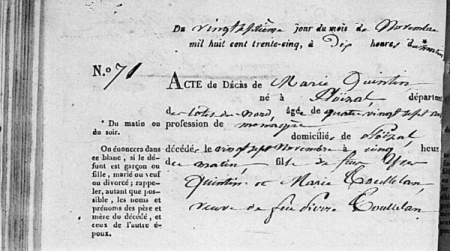 Du vingt septième jour du mois de Novembre
mil huit cent trente-cinq, à Dix heures du matin
N.º 71
ACTE de Décès de Marie Quintin
né à Ploëzal, départem
des Côtes du Nord, âgée de quatre vingt sept ans
profession de
domiciliés de Ploëzal
décédée, le vingt sept novembre à cinq heur
du matin, fille de feux Yves
Quintin et Marie
veuve de feu Pierre
* Du matin ou
du soir.
On énoncera dans
ce blanc, si le dé-
funt est garçon ou
fille, marié ou veuf
ou divorcé; rappe-
ler, autant que pos-
sible, les noms et
prénoms des père et
mère du décédé, et
ceux de l'autre é-
poux.